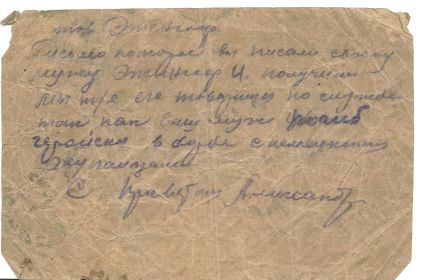 тов Этингоф.
Письмо которое вы писали своему
мужу Этингоф И. получили
мы т.е его товарищи по службе
так как Ваш муж погиб
геройски в борьбе с немецкими
оккупантами
С Приветом Александр